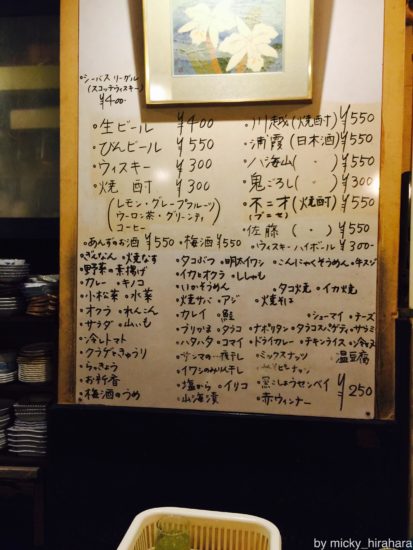 ・シーバスリーガル
(スコッチウィスキー)
¥400
・生ビール ¥400
・びんビール ¥550
・ウィスキー ¥300
・焼酎 ¥300
(レモン・グレープフルーツ
ウーロン茶・グリーンティ
コーヒー)
・あんずのお酒 ¥550 ・梅酒 ¥550
・川越(焼酎) ¥550
・浦霞(日本酒) ¥550
・八海山( 〃 ) ¥550
・鬼ごろし( 〃 ) ¥300
・不二才(焼酎) ¥550
(ブニセ)
・佐藤( 〃 ) ¥550
・ウィスキーハイボール ¥300
・ぎんなん ・焼なす
・野菜の素揚げ
・カレー ・キノコ
・小松菜 ・水菜
・オクラ ・れんこん
・サラダ ・山いも
・冷しトマト
・クラゲときゅうり
・らっきょう
・お新香
・梅酒のうめ
・タコぶつ ・明太イワシ ・こんにゃくそうめん ・牛スジ
・イカとオクラ ・ししゃも
・いかそうめん ・タコ焼 ・イカ焼
・焼サバ ・アジ ・焼そば
・カレイ ・鮭 ・シューマイ ・チーズ
・ブリかま ・タラコ ・ナポリタン ・タラコスパゲティ ・サラミ
・ハタハタ ・コマイ ・ドライカレー ・チキンライス ・冷やっこ
・サンマの一夜干し ・ミックスナッツ 温豆腐
・イワシのみりん干し ・ピーナッツ
・塩から ・イリコ ・黒こしょうセンベイ
・山海漬 ・赤ウィンナー
¥250
by micky_hirahara